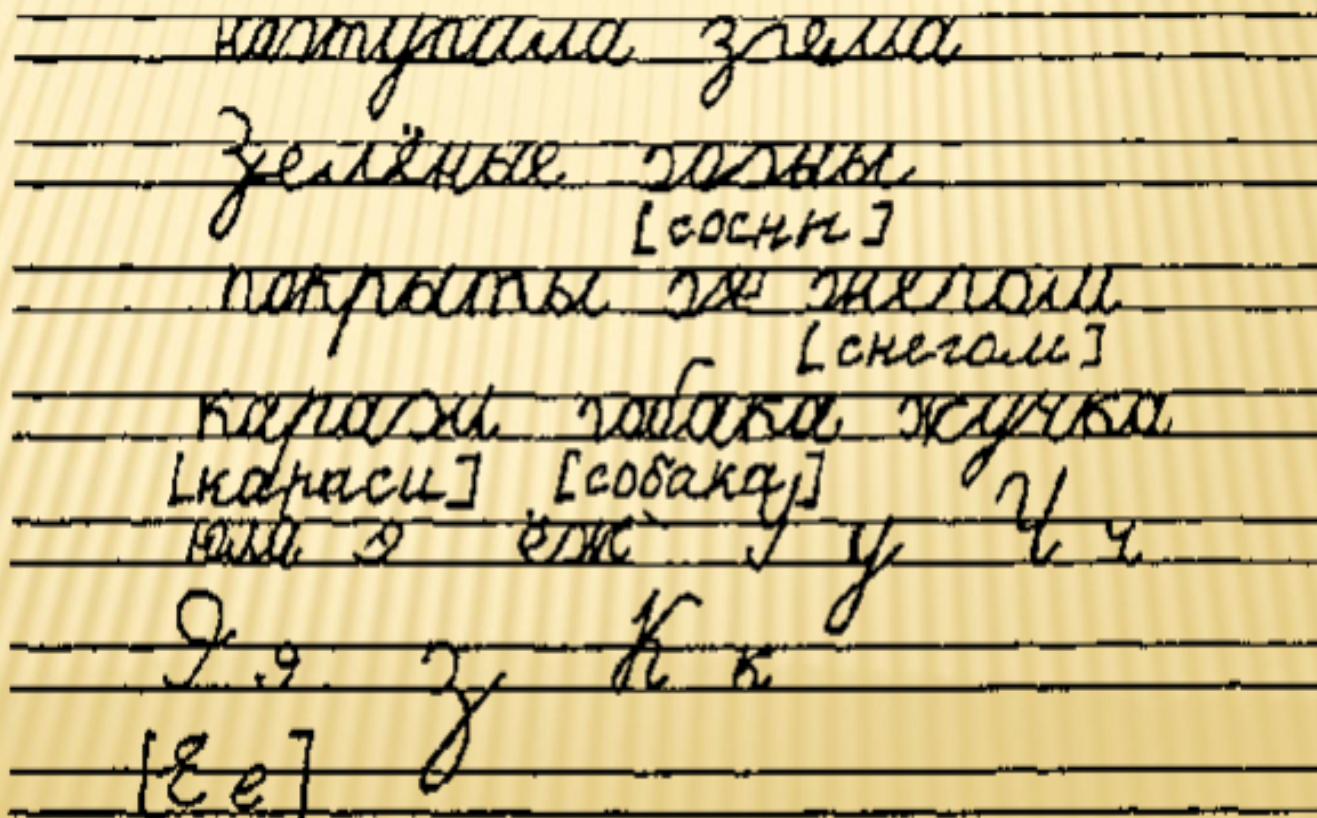 наступила зима
Зелёные сосны
[соснн]
покрыты снегом
[снегом]
караси собака жучка
[караси] [собака]
юла я ёж У у Ч ч
Я я З К к
[Е е]